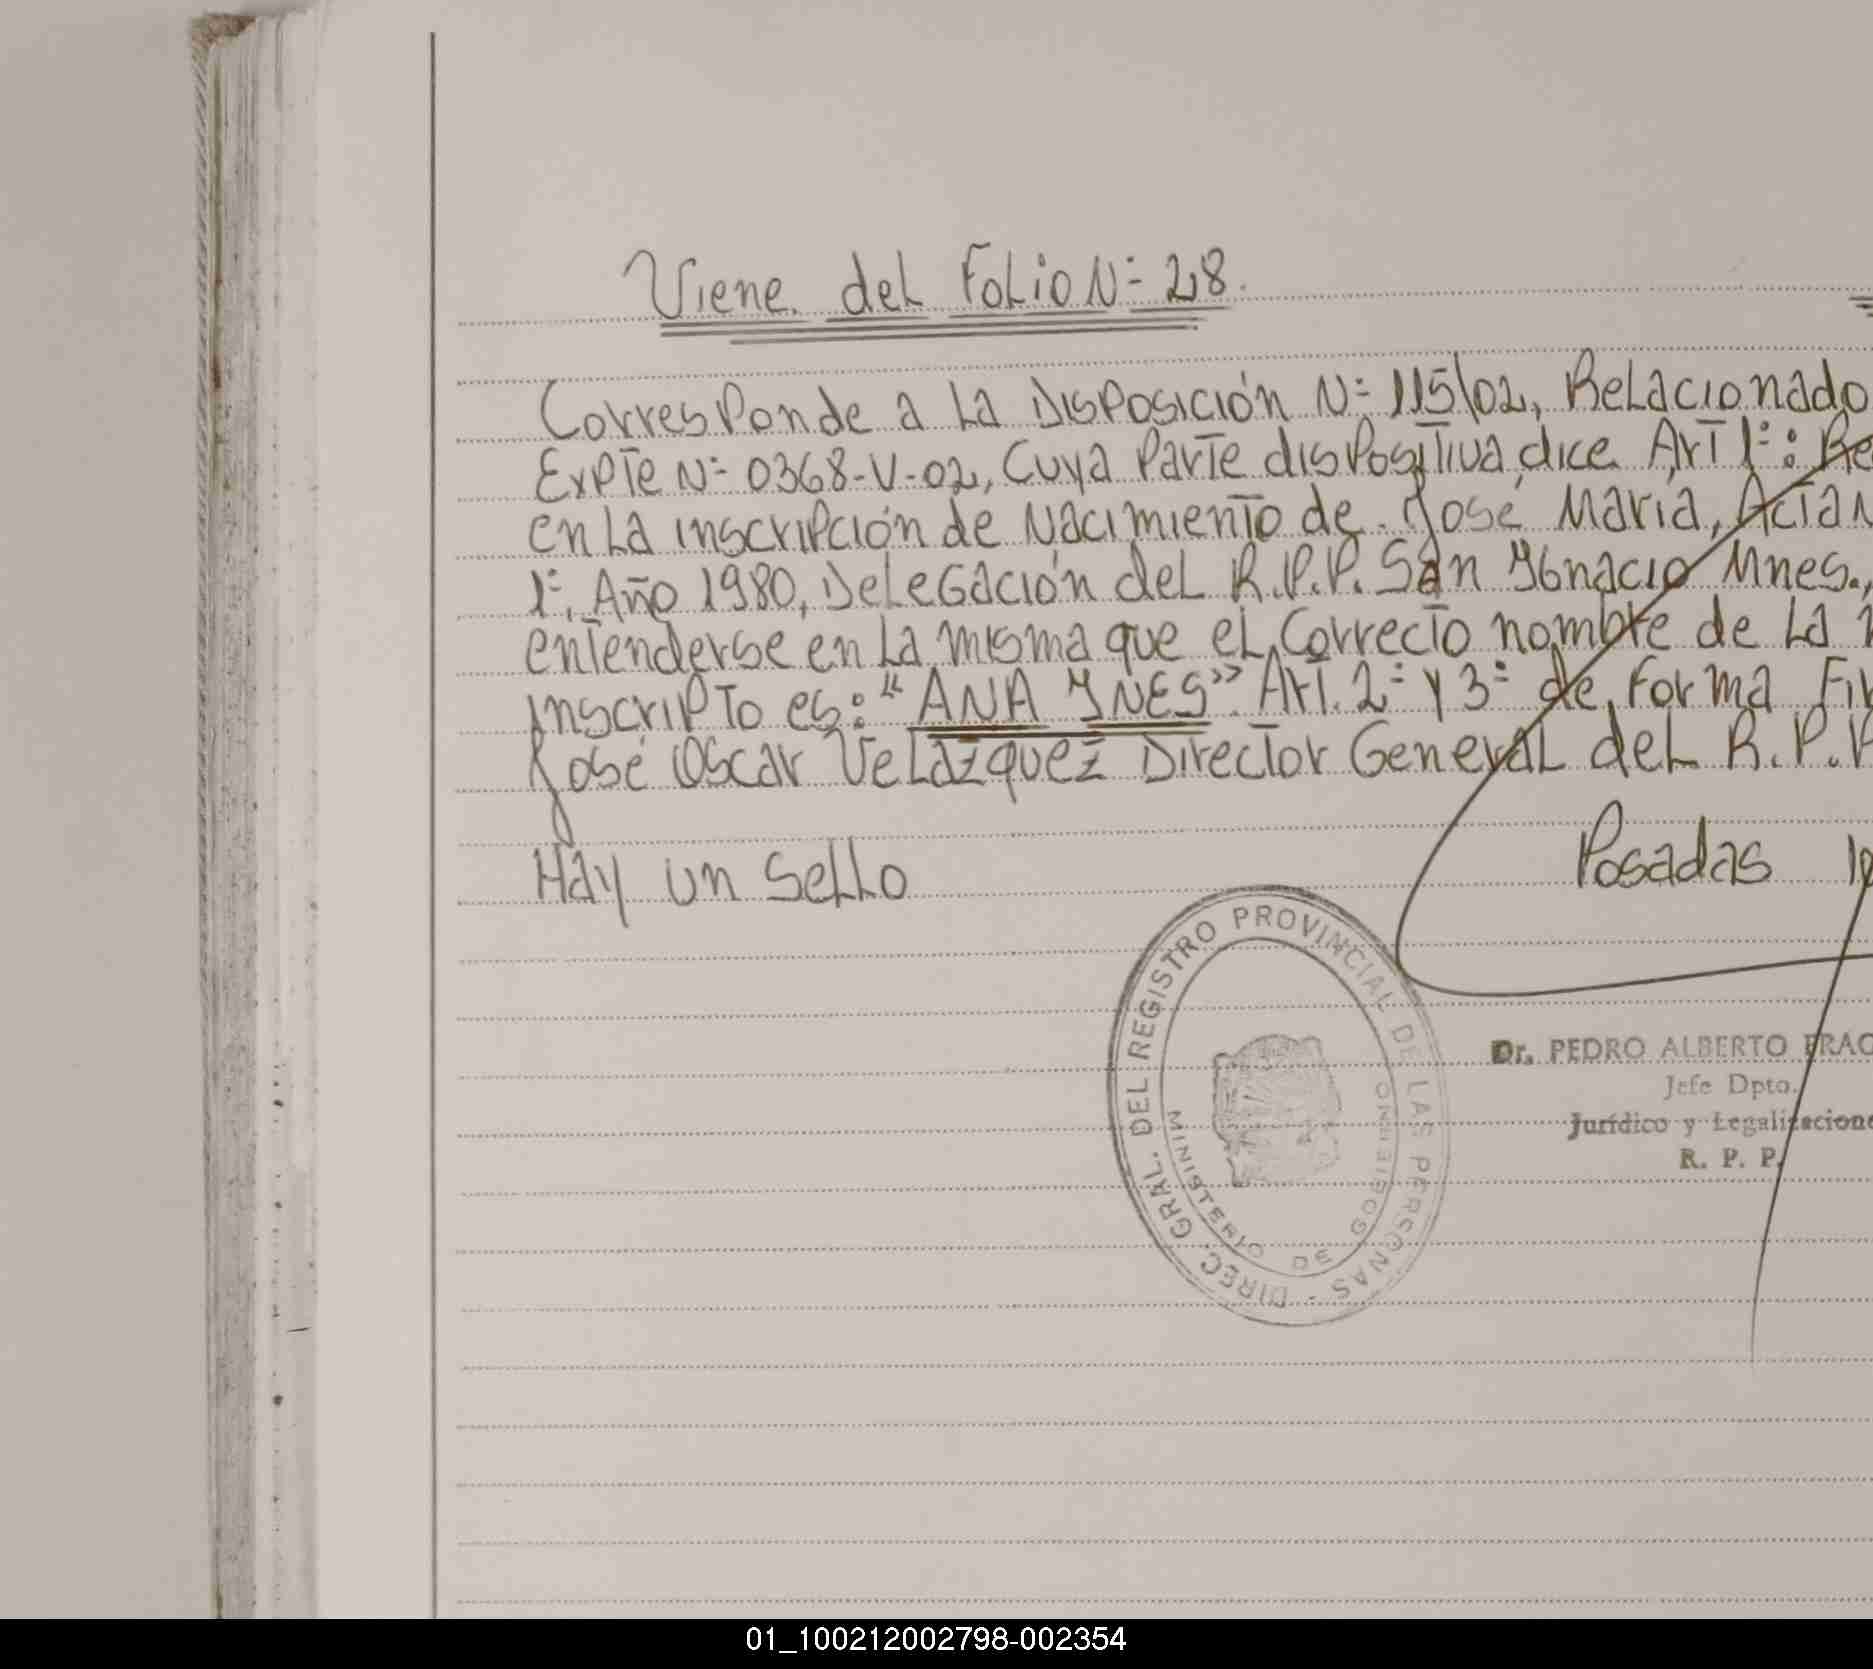 Viene del Folio N= 28.
Corresponde a la Disposición N= 115/02, Relacionado
Expte N= 0368-V-02, Cuya Parte dispositiva dice Art 1=: Re
en la inscripción de Nacimiento de José María, Acta N
1=, Año 1980, Delegación del R.P.P. San Ygnacio Mnes.,
entenderse en la misma que el Correcto nombre de la
inscripto es: "ANA YNES". Art. 2= y 3= de Forma Fir
José Oscar Velázquez Director General del R.P.P
Hay un Sello
Posadas
DIREC. GRAL. DEL REGISTRO PROVINCIAL DE LAS PERSONAS -
MINISTERIO DE GOBIERNO
Dr. PEDRO ALBERTO FRAC
Jefe Dpto.
Jurídico y Legalizacione
R. P. P.
01_100212002798-002354